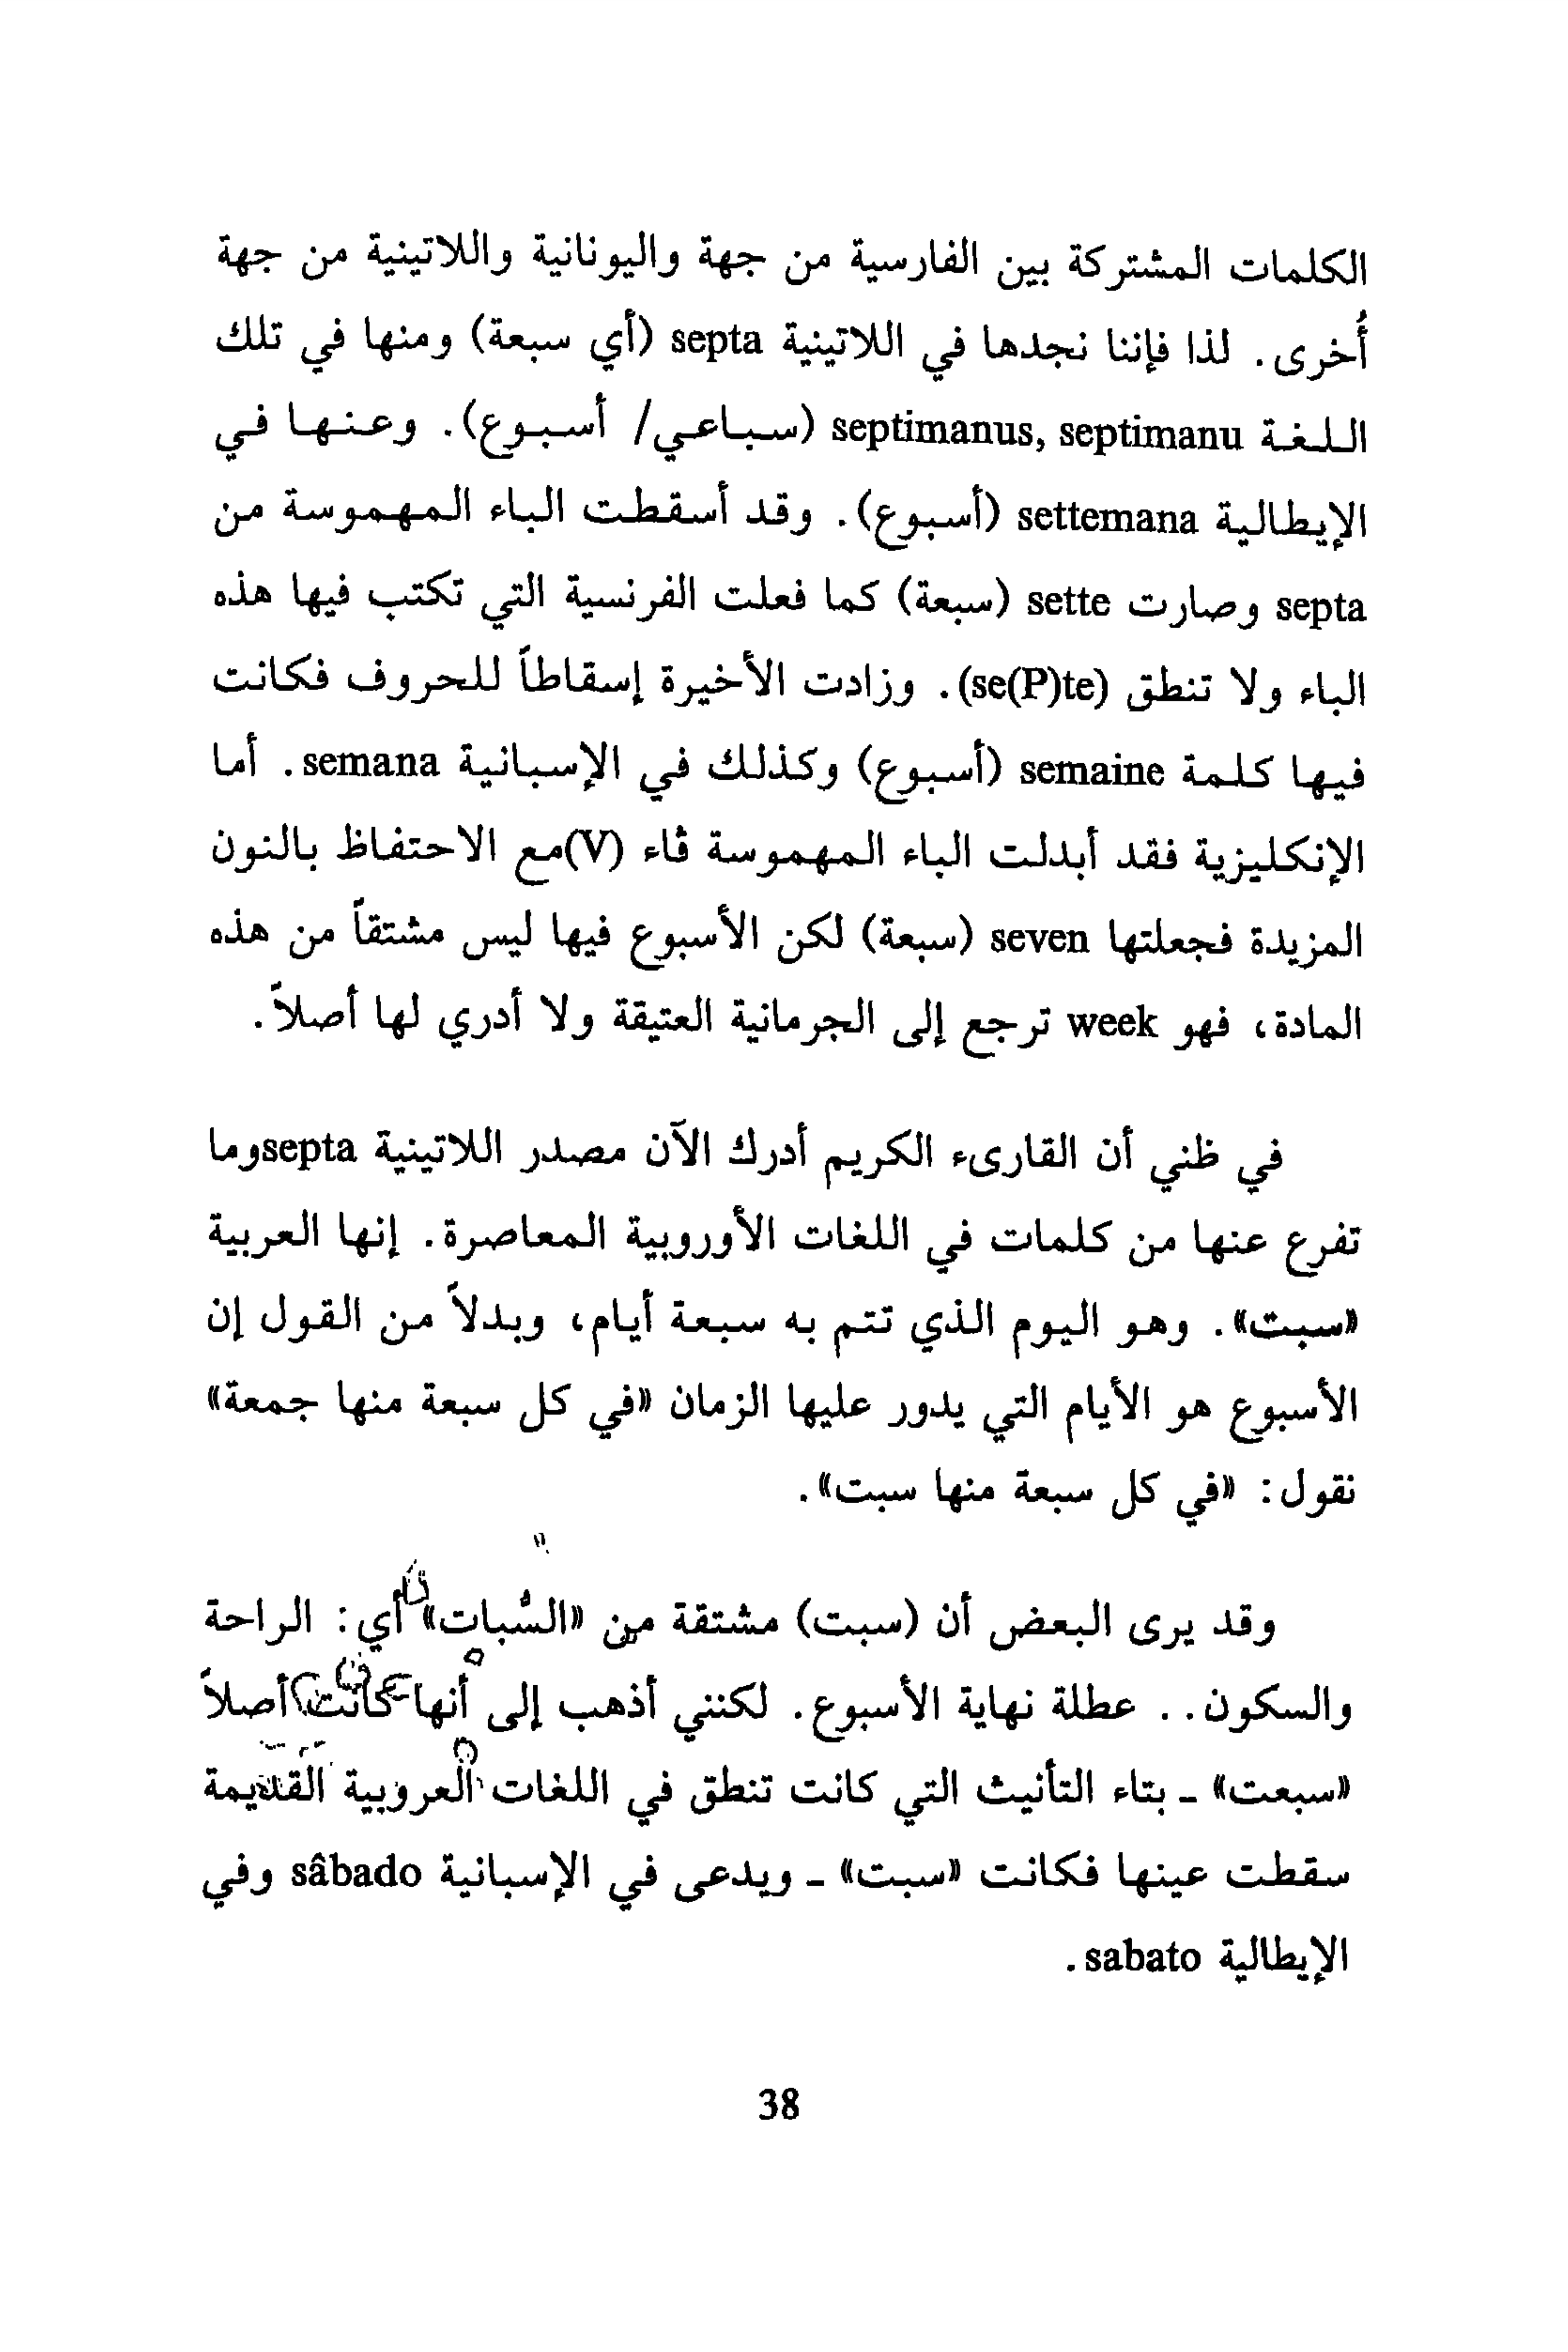 الكلمات المشتركة بين الفارسية من جهة واليونانية واللاتينية من جهة
أُخرى. لذا فإننا نجدها في اللاتينية septa (أي سبعة) ومنها في تلك
اللغة septimanus, septimanu (سباعي/ أسبوع). وعنها في
الإيطالية settemana (أسبوع). وقد أسقطت الباء المهموسة من
septa وصارت sette (سبعة) كما فعلت الفرنسية التي تكتب فيها هذه
الباء ولا تنطق (se(P)te). وزادت الأخيرة إسقاطاً للحروف فكانت
فيها كلمة semaine (أسبوع) وكذلك في الإسبانية semana. أما
الإنكليزية فقد أبدلت الباء المهموسة ڤاء (V)مع الاحتفاظ بالنون
المزيدة فجعلتها seven (سبعة) لكن الأسبوع فيها ليس مشتقاً من هذه
المادة، فهو week ترجع إلى الجرمانية العتيقة ولا أدري لها أصلاً.
في ظني أن القارىء الكريم أدرك الآن مصدر اللاتينية septaوما
تفرع عنها من كلمات في اللغات الأوروبية المعاصرة. إنها العربية
«سبت». وهو اليوم الذي تتم به سبعة أيام، وبدلاً من القول إن
الأسبوع هو الأيام التي يدور عليها الزمان «في كل سبعة منها جمعة»
نقول: «في كل سبعة منها سبت».
وقد يرى البعض أن (سبت) مشتقة من «السُّبات» أي: الراحة
والسكون.. عطلة نهاية الأسبوع. لكنني أذهب إلى أنها كانت أصلاً
«سبعت» - بتاء التأنيث التي كانت تنطق في اللغات العروبية القديمة
سقطت عينها فكانت «سبت» - ويدعى في الإسبانية sâbado وفي
الإيطالية sabato.
38